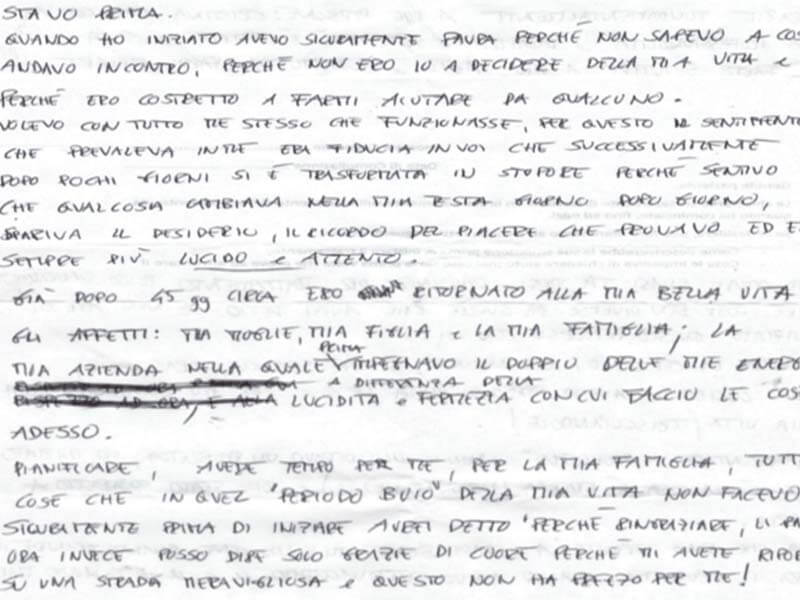 STAVO PRIMA.
QUANDO HO INIZIATO AVEVO SICURAMENTE PAURA PERCHÉ NON SAPEVO A COS
ANDAVO INCONTRO, PERCHÉ NON ERO IO A DECIDERE DELLA MIA VITA e
PERCHÉ ERO COSTRETTO A FARMI AIUTARE DA QUALCUNO.
VOLEVO CON TUTTO ME STESSO CHE FUNZIONASSE, PER QUESTO IL SENTIMENTO
CHE PREVALEVA IN ME ERA FIDUCIA IN VOI CHE SUCCESSIVAMENTE
DOPO POCHI GIORNI SI È TRASFORMATA IN STUPORE PERCHÉ SENTIVO
CHE QUALCOSA CAMBIAVA NELLA MIA TESTA GIORNO DOPO GIORNO,
SPARIVA IL DESIDERIO, IL RICORDO DEL PIACERE CHE PROVAVO ED E
SEMPRE PIÙ LUCIDO e ATTENTO.
GIÀ DOPO 45 gg CIRCA ERO RITORNATO ALLA MIA BELLA VITA
GLI AFFETTI: MIA MOGLIE, MIA FIGLIA e LA MIA FAMIGLIA; LA
MIA AZIENDA NELLA QUALE PRIMA IMPEGNAVO IL DOPPIO DELLE MIE ENERG
A DIFFERENZA DELLA
LUCIDITÀ e FERMEZZA CON CUI FACCIO LE COS
ADESSO.
PIANIFICARE, AVERE TEMPO PER ME, PER LA MIA FAMIGLIA, TUTT
COSE CHE IN QUEL "PERIODO BUIO" DELLA MIA VITA NON FACEVO
SICURAMENTE PRIMA DI INIZIARE AVREI DETTO "PERCHÉ RINGRAZIARE, LI PA
ORA INVECE POSSO DIRE SOLO GRAZIE DI CUORE PERCHÉ MI AVETE RIPOR
SU UNA STRADA MERAVIGLIOSA e QUESTO NON HA PREZZO PER ME!